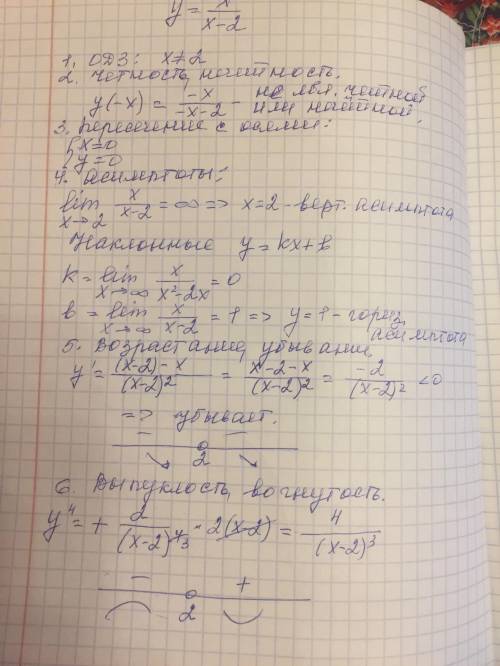 y = x/(x-2)
1. ОДЗ: x≠2
2. Четность, нечётность.
y(-x) = -x/(-x-2) - не явл. четной
или нечётной.
3. Пересечение с осями:
{ x=0
y=0
4. Асимптоты:
lim x→2 x/(x-2) = ∞ => x=2 - верт. асимптота
Наклонные y=kx+b
k = lim x→∞ x/(x²-2x) = 0
b = lim x→∞ x/(x-2) = 1 => y=1 - гориз.
асимптота
5. Возрастание, убывание,
y' = ((x-2)-x)/(x-2)² = (x-2-x)/(x-2)² = -2/(x-2)² <0
=> убывает.
- -
2
6. Выпуклость, вогнутость.
y'' = + 2/(x-2)⁴ 3 · 2(x-2) = 4/(x-2)³
- +
2